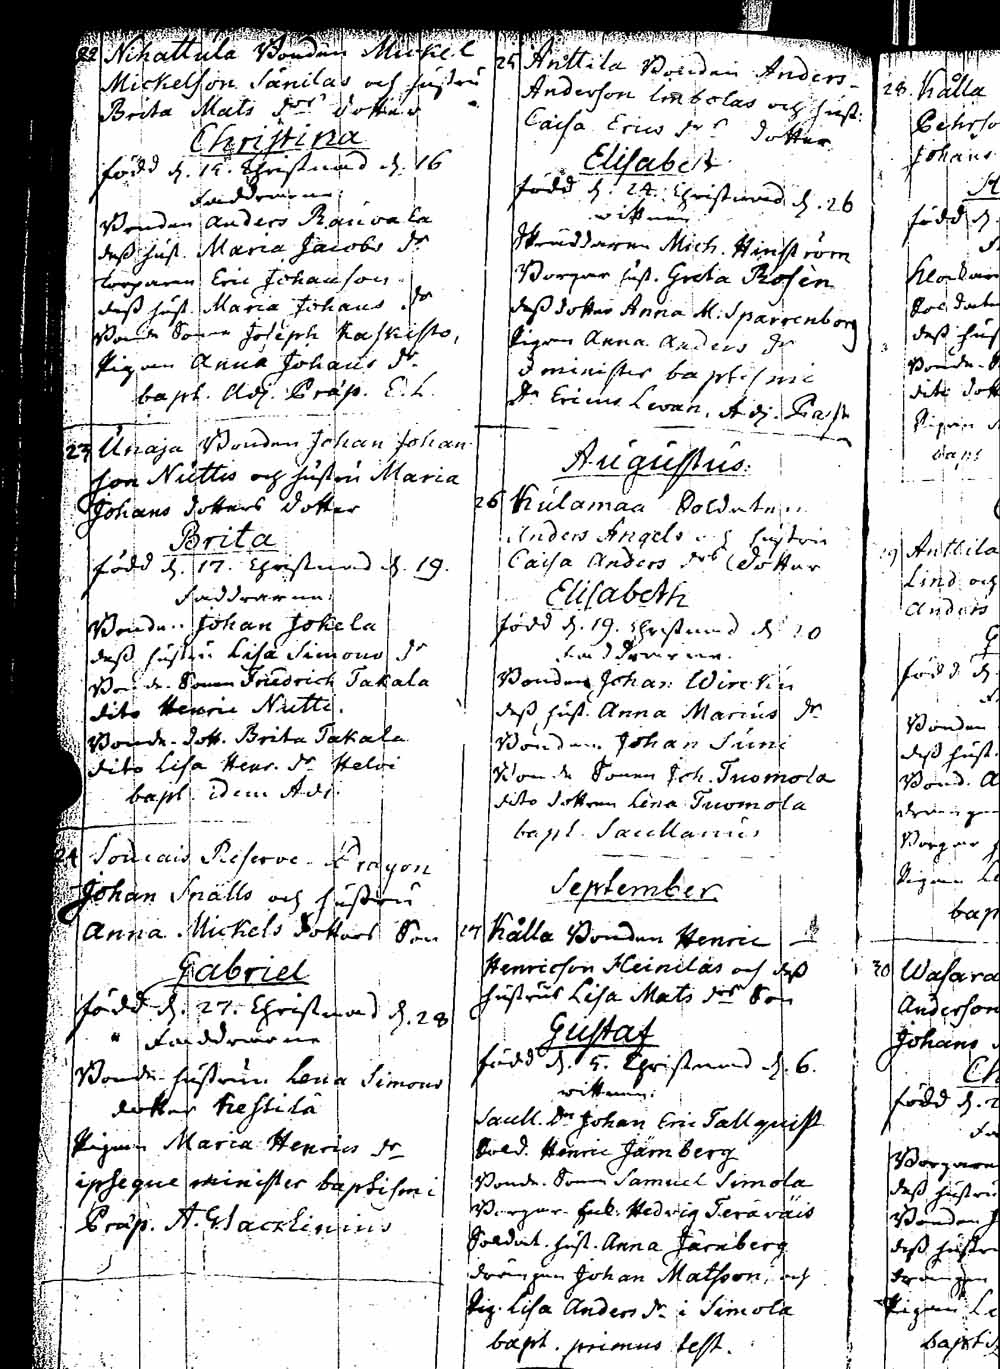 22 Nihattula Bonden Mickel
Mickelson Sänilas och hustru
Brita Mats dors dotter
Christina
född d. 15. Christnad d. 16
Faddrarne
Bonden Anders Rauvala
dess hust. Maria Jacobs dr
Torparen Eric Johanson
dess hust. Maria Johans dr
Bonde Sonen Joseph Kaskisto,
Pigan Anna Johans dr
bapt. Adj. Präp. E. L.
23 Unaja Bonden Johan Johan
son Nuttis och hustru Maria
Johans dotters dotter
Brita
född d. 17. Christnad d. 19.
Faddrarne
Bonden Johan Jokela
dess hustru Lisa Simons dr
Bonde Sonen Friedrich Takala
dito Henric Nutti.
Bonde dott. Brita Takala
dito Lisa Henr. dr Helvi
bapt. idem Adj.
24 Soucais Reserve Dragon
Johan Snälls och hustru
Anna Mickels dotters Son
Gabriel
född d. 27. Christnad d. 28
Faddrarne
Bonde hustrun Lena Simons
dotter Kestilä
Pigan Maria Henrics dr
ipseque minister baptismi
Präp. A. Glacklinius
25 Anttila Bonden Anders
Anderson Imbolas och hust.
Caisa Erics drs dotter
Elisabet
född d. 24. Christnad d. 26
wittnen
Skräddaren Mich. Hinström
Borgar hust. Greta Rosèn
dess dotter Anna M. Sparrenborg
Pigan Anna Anders dr
minister baptismi
Dr Ericus Levan. Adj. Past
Augustus.
26 Kulamaa Soldaten
Anders Angels och hustru
Caisa Anders drs Dotter
Elisabeth
född d. 19. Christnad d. 20
Faddrarne.
Bonden Johan Wirckki
dess hust. Anna Marcus dr
Bonden Johan Suni
Bonde Sonen Joh. Tuomola
dito dottren Lena Tuomola
bapt. Sacellanus
September
27 Kålla Bonden Henric
Henricson Heinilas och dess
hustrus Lisa Mats drs Son
Gustaf
född d. 5. Christnad d. 6.
wittnen.
Sacell. Dn Johan Eric Tallquist
Sold. Henric Järnberg
Bonde Sonen Samuel Simola
Borgar Enk. Hedvig Teräväis
Soldat. hust. Anna Järnberg
drängen Johan Matsson, och
Pig. Lisa Anders dr i Simola
bapt. primus test.
28 Kålla
Pehrso
Johans
född d.
Klockar
Soldate
dess hus
Bonde S
dito dott
Pigan
bapt
29 Anttila
Lind och
Anders
född d.
Bonden
dess hust.
Bond. A
drängen
Borgar
Pigan Le
bap
30 Wasara
Anderson
Johans
Ch
född d. 2
Fa
Borgare
dess hustru
Bonden J
dess hustru
drängen
Pigan La
baptis